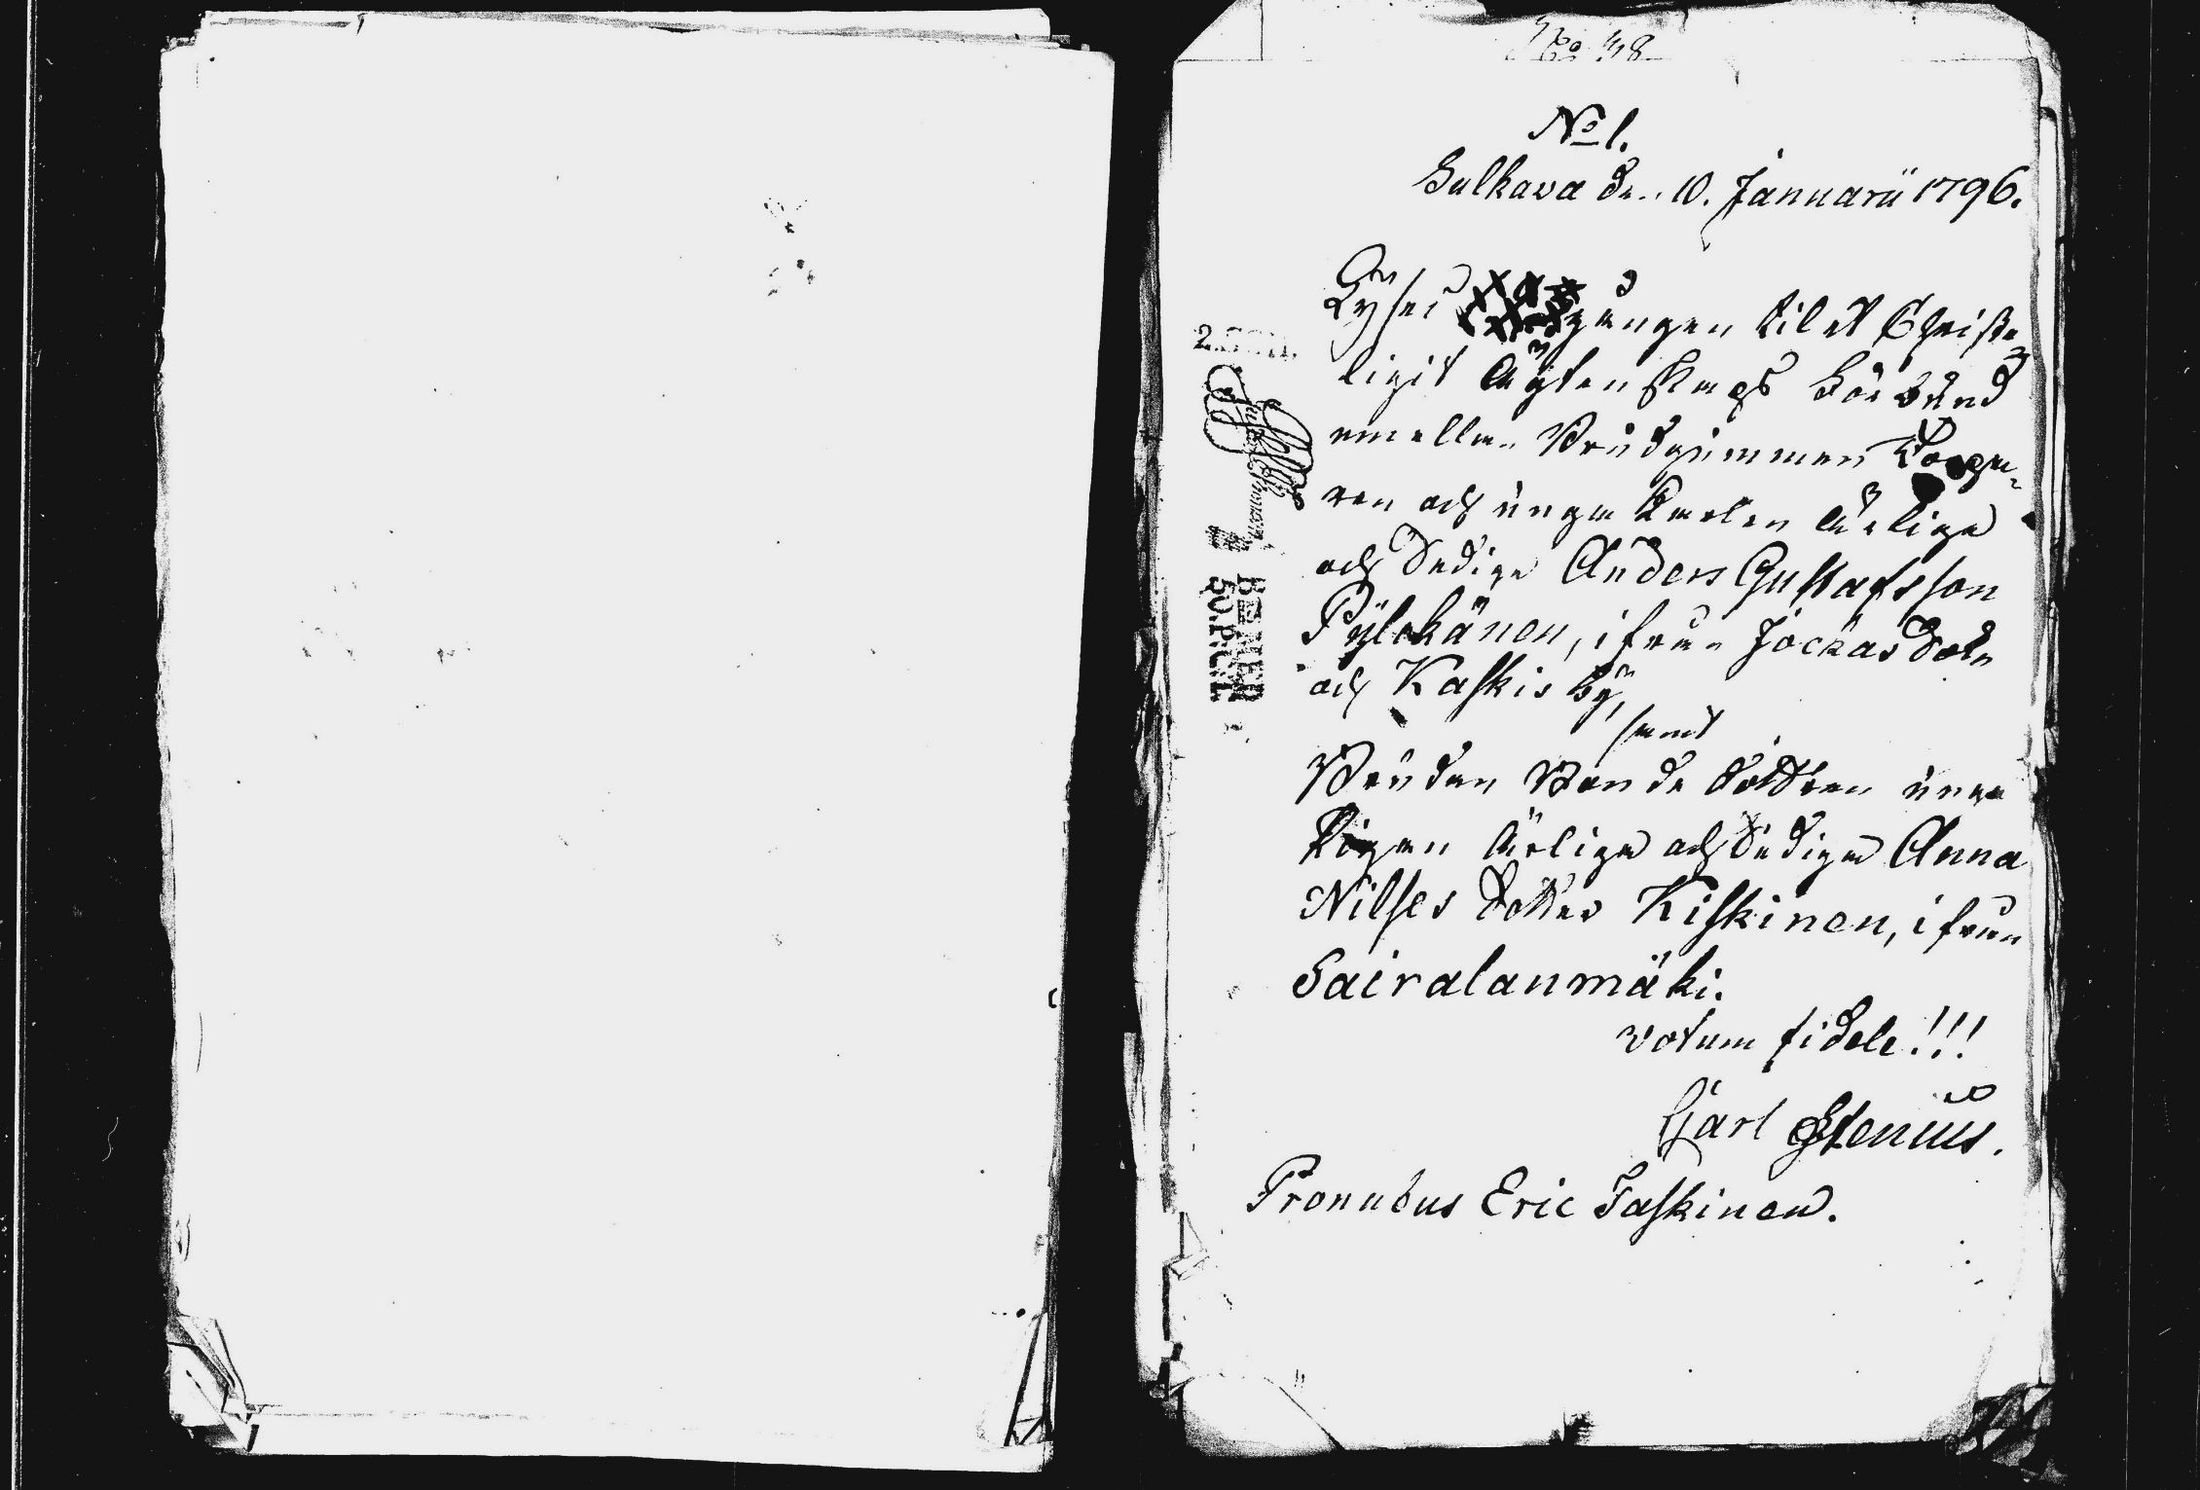 No 38
No 1.
Sulkava den 10. Januarii 1796.
Lyses gången til et Christe
ligit Ägtenskaps Förbund
emellan Brudgummen
ren och unga Karlen Ärlige
och Dedige Anders Gustafsson
Pylckänen, ifrån Jockas Sokn
och Kaskis by,
samt
Bruden Bonde Dottren unga
Pigan Ärliga och Dediga Anna
Nilses Dotter Kiskinen, ifrån
Sairalanmäki.
votum fidele!!!
Carl Stenius.
Pronubus Eric Taskinen.